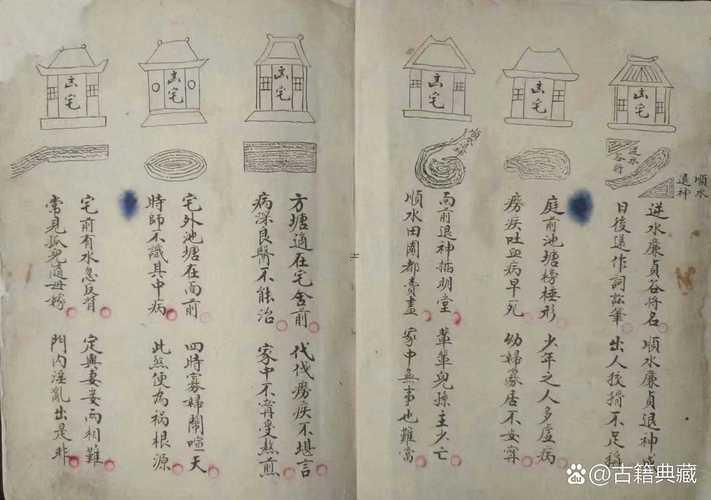 凶宅
逆水
谷将
順水
退神
逆水廉貞谷将名 順水廉貞退神成
日後送作詞訟筆 出人狡猾不足稱
凶宅
庭前池塘 形 少年之人多虛病
癆疾吐血病早死 幼婦寡居不安寧
凶宅
面前退神插明堂 輩輩兒孫主少亡
順水田園都賣盡 家中無事也難當
凶宅
方塘適在宅舍前 代代癆疾不堪言
病深良醫不能治 家中不寧受熬煎
凶宅
宅外池塘在面前 四時寡婦鬧喧天
時師不識其中病 此煞便為禍根源
凶宅
宅前有水急反背 定與妻妾兩相難
常見孤兒隨母嫁 門內淫亂出是非
古籍典藏